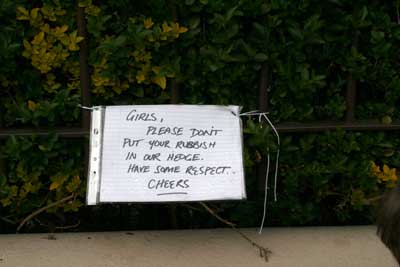 GIRLS,
PLEASE DON'T
PUT YOUR RUBBISH
IN OUR HEDGE.
HAVE SOME RESPECT..
CHEERS